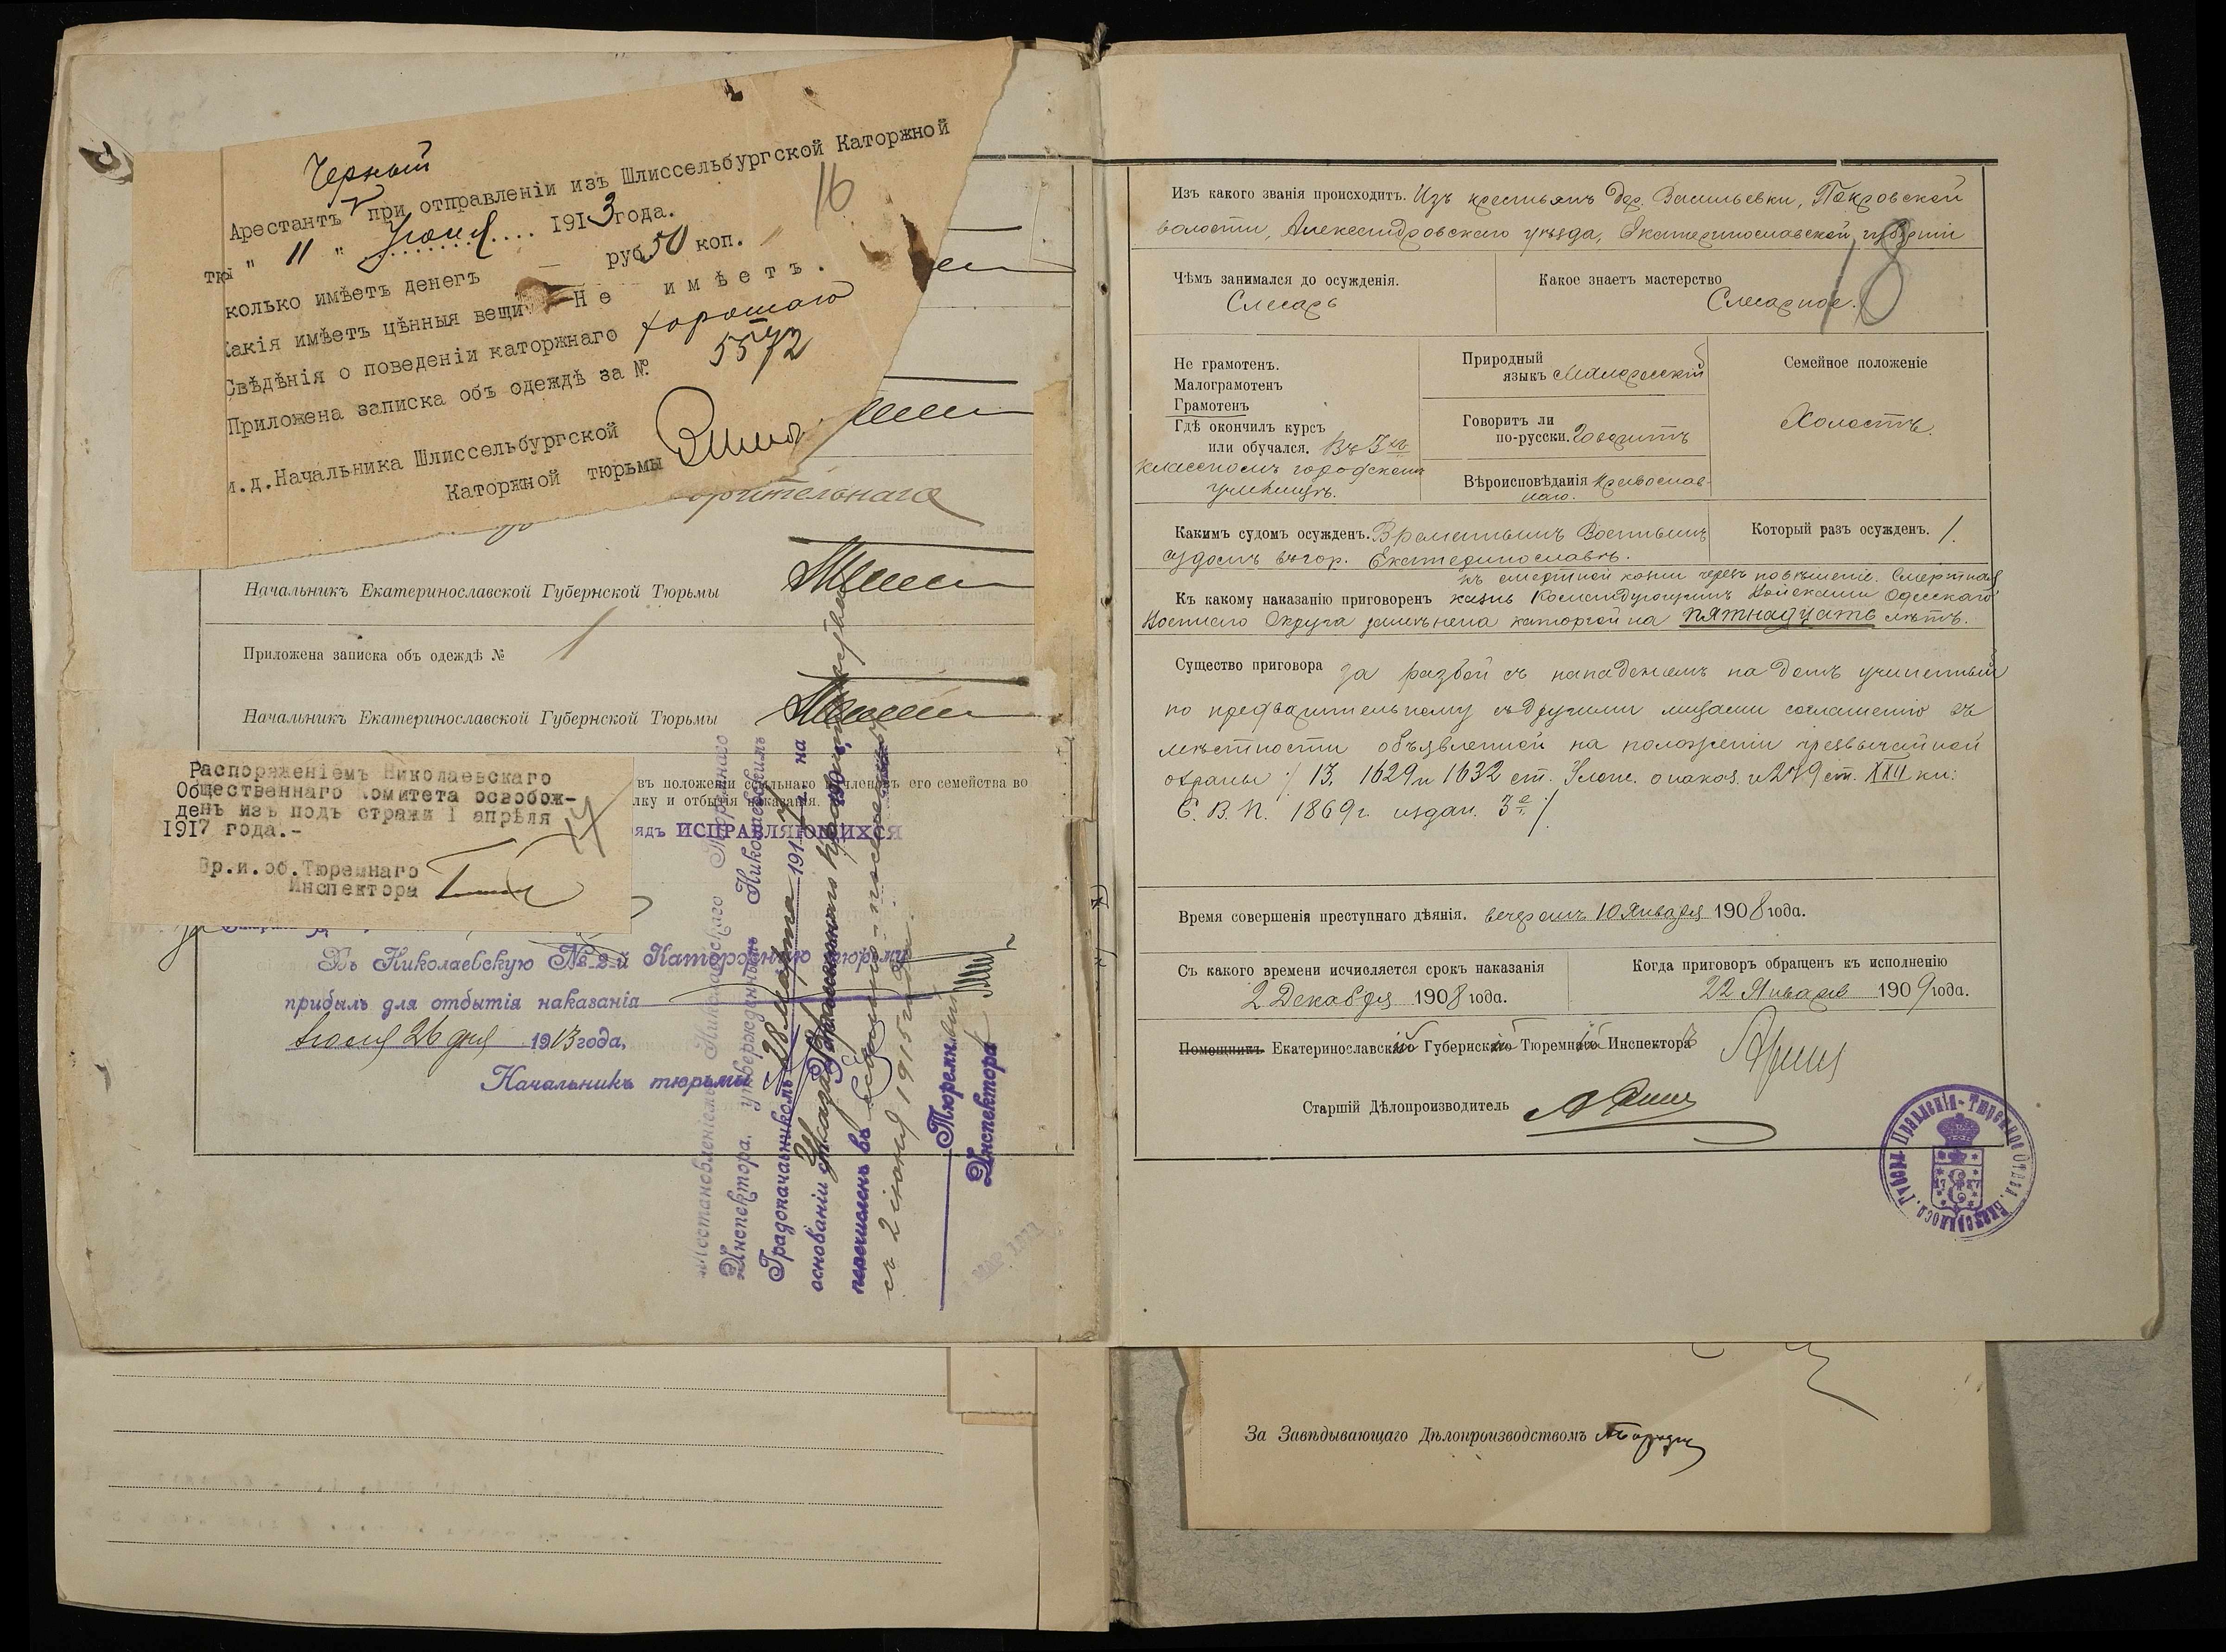 Черный
Арестантъ при отправленіи изъ Шлиссельбургской Каторжной
16
" 11 " Іюля 1913 года.
колько имѣетъ денегъ — руб 50 коп.
акія имѣетъ цѣнныя вещи Не имѣетъ.
Свѣдѣнія о поведеніи каторжнаго хорошаго
Приложена записка объ одеждѣ за № 5572
и.д.Начальника Шлиссельбургской
Каторжной тюрьмы
Начальникъ Екатеринославской Губернской Тюрьмы
Приложена записка объ одеждѣ № 1
Начальникъ Екатеринославской Губернской Тюрьмы
Распоряженіемъ Николаевскаго
Общественнаго Комитета освобож-
денъ изъ подъ стражи 1 апрѣля
1917 года.-
Вр.и.об.Тюремнаго
Инспектора
въ положеніи ссыльнаго и членовъ его семейства во
лку и отбытія наказанія.
ядъ ИСПРАВЛЯЮЩИХСЯ
Въ Николаевскую № 2-й Каторжную тюрьму
прибылъ для отбытія наказанія
Іюля 26 дня 1913 года,
Начальникъ тюрьмы
Постановленіемъ Николаевскаго Тюремнаго
Инспектора, утвержденнымъ Николаевскимъ
Градоначальникомъ 28 Марта 191 на
основаніи
перечисленъ въ ссыльно-поселенцы
съ 2 іюня 1915 года.
Тюремный
Инспектора
Изъ какого званія происходитъ. Изъ крестьянъ дер. Васильевки, Покровской
волости, Александровскаго уѣзда, Екатеринославской губерніи
18
Чѣмъ занимался до осужденія.
Слесарь
Какое знаетъ мастерство
Слесарное.
Не грамотенъ.
Малограмотенъ
Грамотенъ
Гдѣ окончилъ курсъ
или обучался. Въ 3хъ
классномъ городскомъ
училищѣ.
Природный
языкъ Малоросскій
Говоритъ ли
по-русски. Говоритъ
Вѣроисповѣданія Православ-
наго.
Семейное положеніе
Холостъ.
Какимъ судомъ осужденъ. Временнымъ Военнымъ
судомъ въ гор. Екатеринославѣ.
Который разъ осужденъ. 1.
къ смертной казни черезъ повѣшеніе. Смертная
Къ какому наказанію приговоренъ казнь Командующимъ Войсками Одесскаго
Военнаго Округа замѣнена каторгой на пятнадцать лѣтъ.
Существо приговора за разбой съ нападеніемъ на домъ учиненный
по предварительному съ другими лицами соглашенію въ
мѣстности объявленной на положеніи чрезвычайной
охраны /13, 1629 и 1632 ст. Улож. о наказ. и 279 ст. XXII кн:
С. В. П. 1869 г. издан. 3е/.
Время совершенія преступнаго дѣянія. вечеромъ 10 Января 1908 года.
Съ какого времени исчисляется срокъ наказанія
2 Декабря 1908 года.
Когда приговоръ обращенъ къ исполненію
22 Января 1909 года.
Помощникъ Екатеринославскій Губернскій Тюремный Инспекторъ
Старшій Дѣлопроизводитель
За Завѣдывающаго Дѣлопроизводствомъ